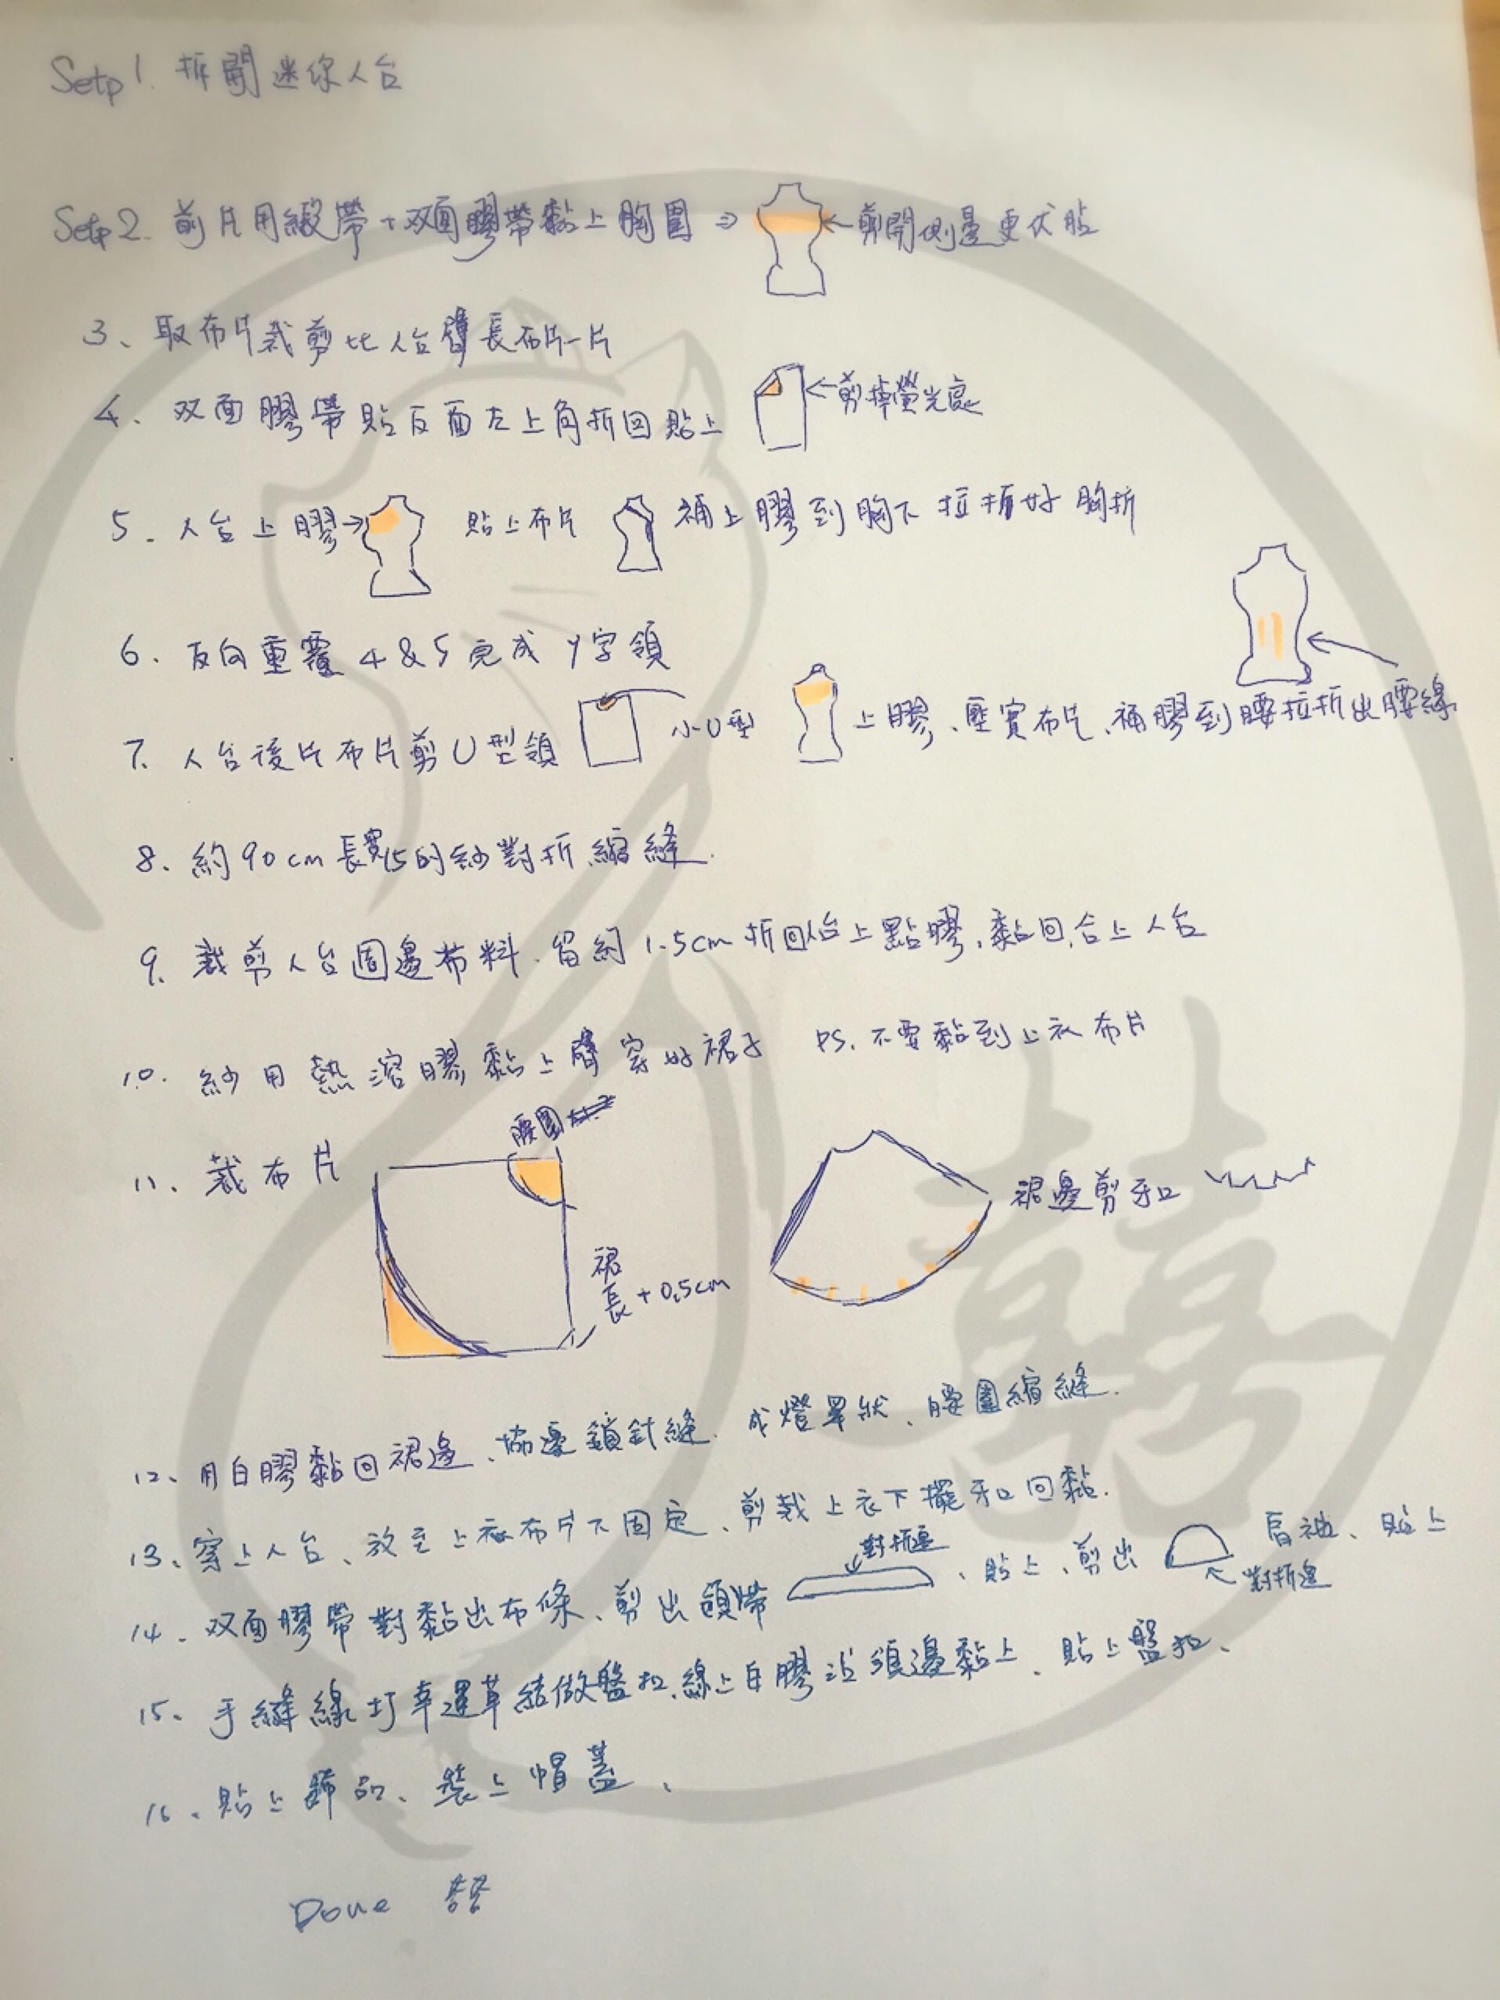 Setp 1. 拆開迷你人台
Setp 2. 前片用緞帶+双面膠帶黏上胸圍 ⇒ ←剪開側邊更伏貼
3、取布片裁剪比人台臂長布片一片
4、双面膠帶貼反面左上角折回貼上 ←剪掉螢光處
5、人台上膠→ 貼上布片 補上膠到胸下拉折好胸折
6、反向重覆4&5完成Y字領
7、人台後片布片剪U型領 小U型 上膠、壓實布片、補膠到腰拉折出腰線
8、約90cm長寬15的紗對折縮縫.
9、裁剪人台圍邊布料、留約1.5cm折回人台上點膠,黏回,合上人台
10、紗用熱溶膠黏上臂穿好裙子 PS.不要黏到上衣布片
11、裁布片
腰圍
裙長+0.5cm
裙邊剪牙口
12、用白膠黏回裙邊、協邊鎖針縫.成燈罩狀、腰圍縮縫.
13、穿上人台、放至上衣布片下固定、剪裁上衣下擺牙口回黏.
14、双面膠帶對黏出布條、剪出領帶 對折邊 、貼上、剪出 肩袖、貼上
對折邊
15、手縫線打幸運草結做盤扣,線上白膠沿領邊黏上、貼上盤扣、
16、貼上飾品、裝上帽蓋、
Done
囍